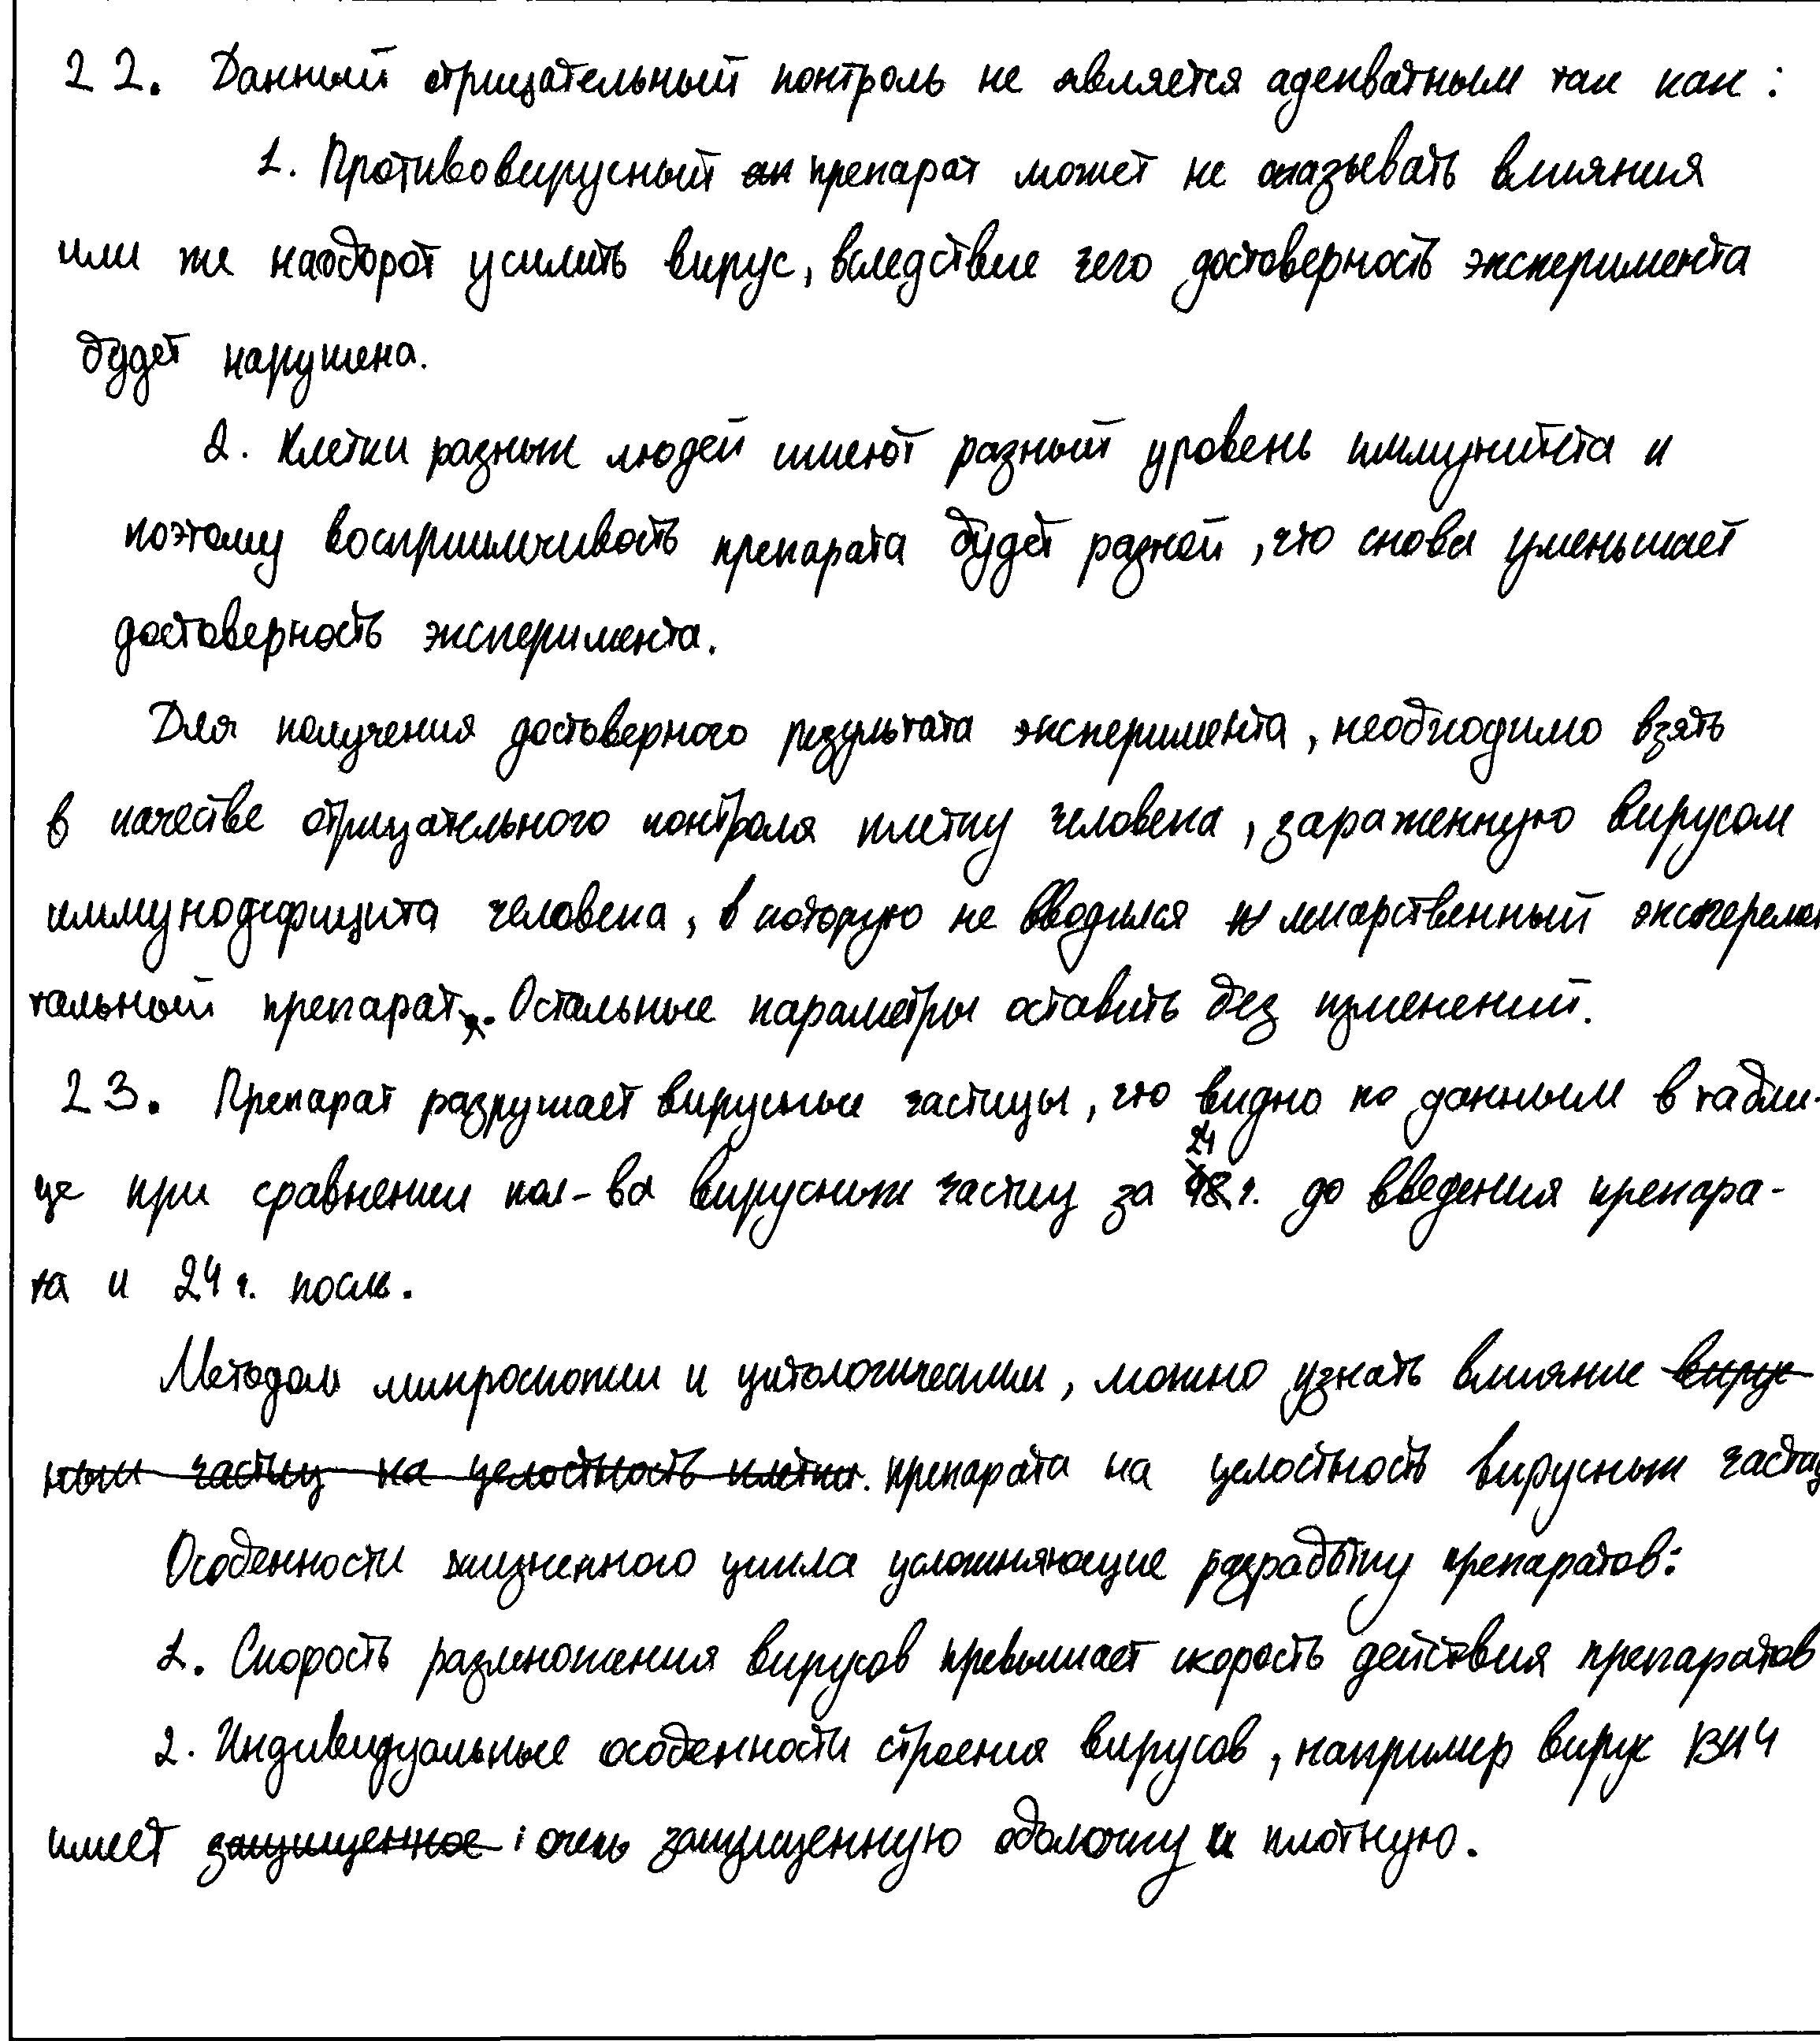 22. Данный отрицательный контроль не является адекватным так как:
1. Противовирусный препарат может не оказывать влияния
или же наоборот усилить вирус, вследствие чего достоверность эксперимента
будет нарушена.
2. Клетки разных людей имеют разный уровень иммунитета и
поэтому восприимчивость препарата будет разной, что снова уменьшает
достоверность эксперимента.
Для получения достоверного результата эксперимента, необходимо взять
в качестве отрицательного контроля клетку человека, зараженную вирусом
иммунодефицита человека, в которую не вводился лекарственный эксперемен
тальный препарат. Остальные параметры оставить без изменений.
23. Препарат разрушает вирусные частицы, что видно по данным в табли-
це при сравнении кол-ва вирусных частиц за 24 ч. до введения препара-
та и 24 ч. после.
Методом микроскопии и цитологическим, можно узнать влияние вирус
ных частиц на целостность клетки. препарата на целостность вирусных частиц
Особенности жизненного цикла усложняющие разработку препаратов:
1. Скорость размножения вирусов превышает скорость действия препаратов
2. Индивидуальные особенности строения вирусов, например вирус ВИЧ
имеет защищенное очень защищенную оболочку и плотную.